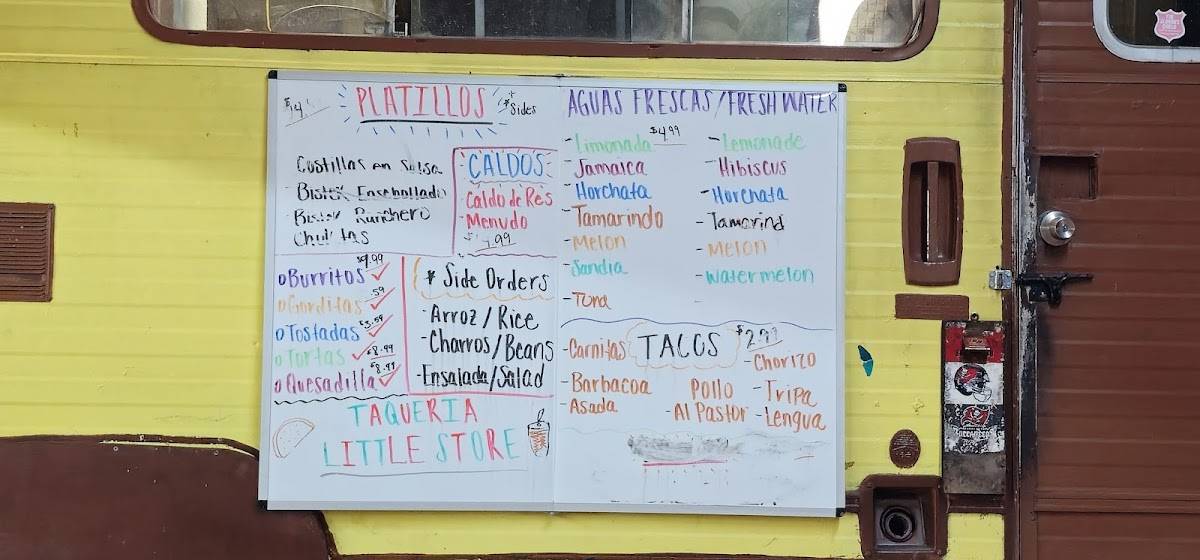 PLATILLOS
+
Sides
Costillas en Salsa
Bistek Encebollado
Bistek Ranchero
CALDOS
-Caldo de Res
-Menudo
$9.99
o Burritos
o Gorditas
.59
o Tostadas $3.59
o Tortas $8.99
o Quesadilla $8.99
* Side Orders
-Arroz/Rice
-Charros/Beans
-Ensalada/Salad
TAQUERIA
LITTLE STORE
AGUAS FRESCAS/FRESH WATER
$4.99
-Limonada -Lemonade
-Jamaica -Hibiscus
-Horchata -Horchata
-Tamarindo -Tamarind
-Melon -Melon
-Sandia -Watermelon
-Tuna
TACOS
-Carnitas
-Barbacoa
-Asada
Pollo
-Al Pastor
-Chorizo
-Tripa
-Lengua
BUCCANEERS